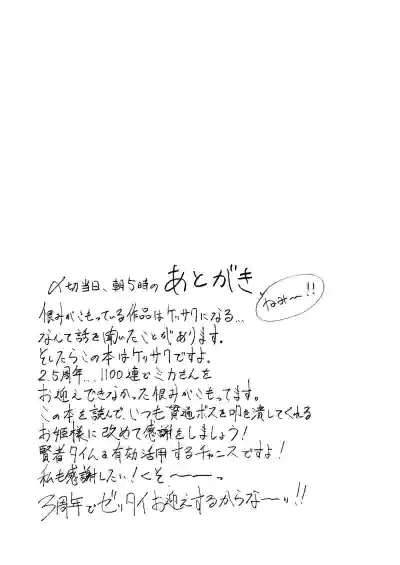 〆切当日、朝5時の あとがき
ねみ〜!!
恨みがこもっている作品はケッサクになる…
なんて話を聞いたことがあります。
そしたらこの本はケッサクですよ。
2.5周年…1100連でミカさんを
お迎えできなかった恨みがこもってます。
この本を読んで、いつも貫通ボスを叩き潰してくれる
お姫様に改めて感謝をしましょう！
賢者タイムを有効活用するチャンスですよ！
私も感謝したい！くそ〜〜〜っ
3周年でゼッタイお迎えするからな〜ッ!!